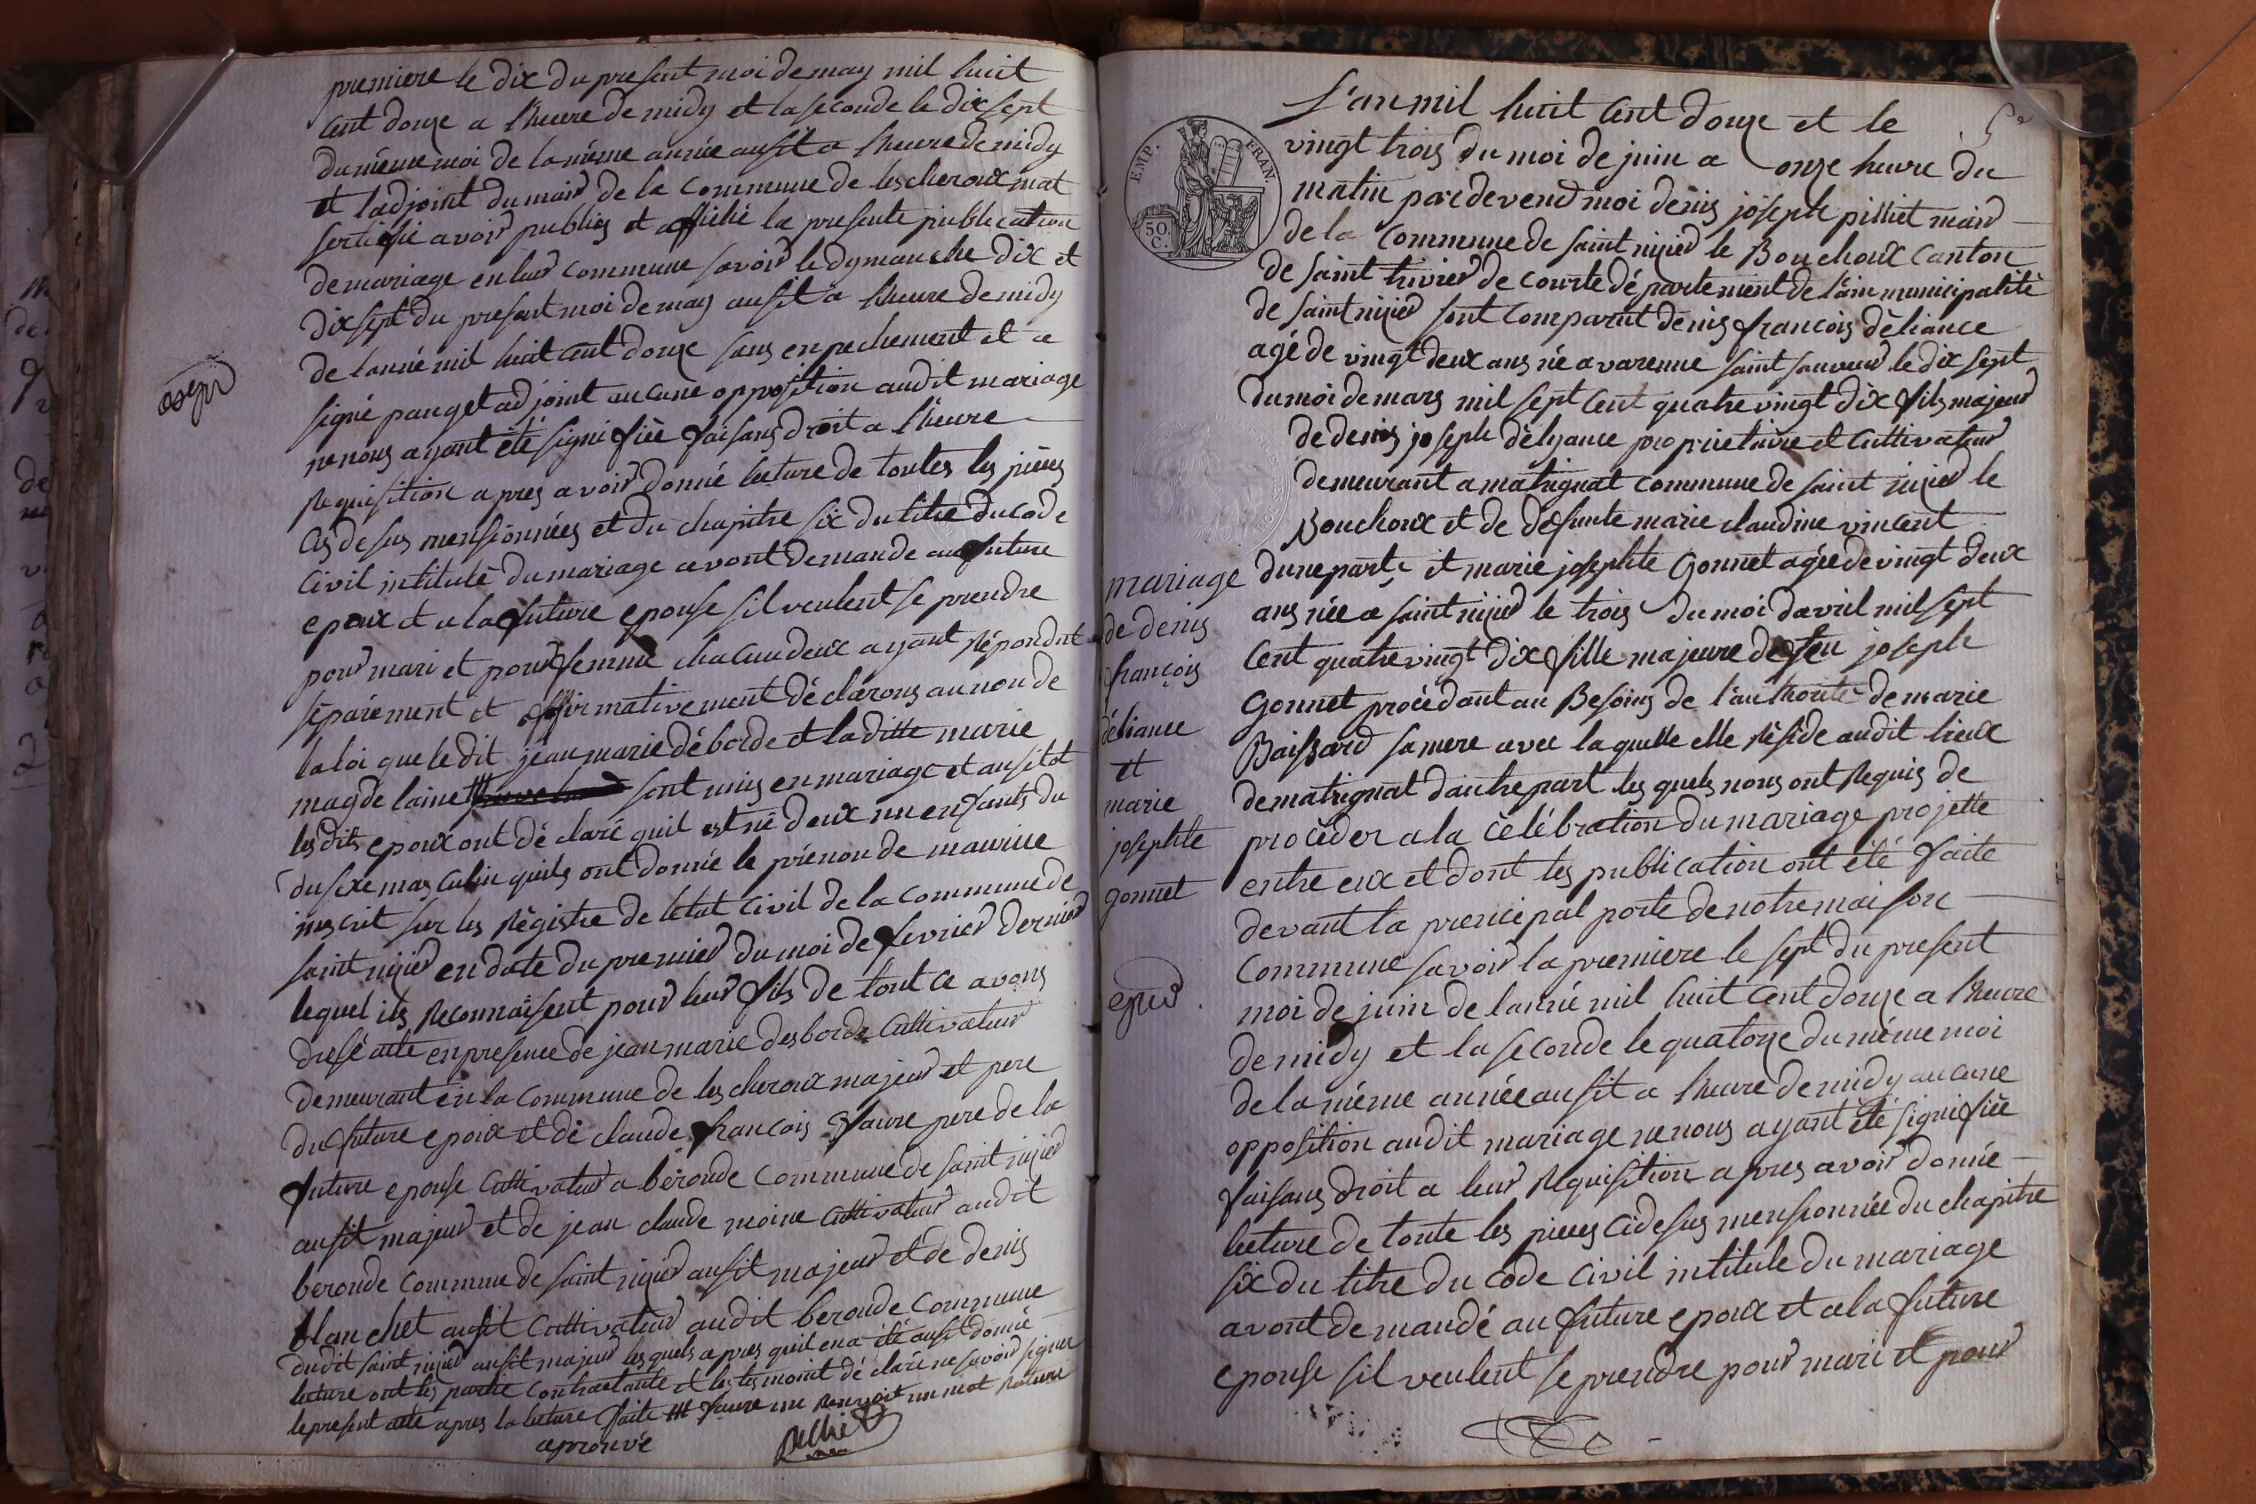 premiere le dix du present moi de may mil huit
cent douze a lheure de midy et la seconde le dix sept
du même moi de la même année ausit a lheure de midy
et ladjoint du maire de la commune de lescheroux mat
sertifié avoir publiés et affiché la presente publication
de mariage en leur commune savoir le dymanche dix et
dix sept du present moi de may ausit a lheure de midy
de lanné mil huit cent douze sans enpechement et a
signé panget adjoint aucune opposition audit mariage
ne nous ayant été signifiée faisans droit a lheure
Requisition apres avoir donné lecture de toutes les pièces
Cis desus mensionnées et du chapitre six du titre du code
civil intitulé du mariage avont demande au future
epoux et a la future epouse sil veulent se prendre
pour mari et pour femme chacun deux ayant Répondut
séparément et affirmativement déclarons au non de
la loi que le dit jean marie déborde et la ditte marie
magdelaine sont unis en mariage et ausitot
les dits epoux ont déclaré quil est né deux un enfants du
du sexe masculin quils ont donné le prénon de maurice
inscrit sur les Régistre de letat civil de la commune de
saint nizier en date du premier du moi de fevrier dernier
lequel ils Reconnaisent pour leur fils de tout ce avons
dresé acte en presence de jean marie desborde cultivateur
demeurant en la commune de lescheroux majeur et pere
du future epoux et de claude françois faure pere de la
future epouse cultivateur a béronde commune de saint nizier
ausit majeur et de jean claude moine cultivateur audit
beronde commune de saint nizier ausit majeur et de denis
blanchet ausit cultivateur audit beronde commune
dudit saint nizier ausit majeur les quels apres quil en a été ausit donné
lecture ont les partie contractante et les tesmoint déclaré ne savoir signer
le present acte apres la lecture faite faure un Renvoit un mot Raturé
aprouvé
EMP. FRAN.
50. C.
L'an mil huit cent douze et le
vingt trois du moi de juin a onze heure du
matin par devend moi denis joseph pillet maire
de la commune de saint nizier le Bouchoux canton
de saint trivier de courte département de lain municipalité
de saint nizier sont comparut denis françois déliance
agé de vingt deux ans né a varenne saint sauveur le dix sept
du moi de mars mil sept cent quatre vingt dix fils majeur
de denis joseph délyance propriétaire et cultivateur
demeurant a matrignat commune de saint nizier le
Bouchoux et de défunte marie claudine vincent
dune part et marie josephte Gonnet agée de vingt deux
ans née a saint nizier le trois du moi davril mil sept
cent quatre vingt dix fille majeure de feu joseph
Gonnet procédant au Besoins de l'authorité de marie
Baissard sa mere avec laquelle elle Réside audit lieux
de matrignat dautre part les quels nous ont Requis de
procéder a la célébration du mariage projette
entre eux et dont les publication ont été faite
devant la prencipal porte de notre maison
commune savoir la premiere le sept du present
moi de juin de lanné mil huit cent douze a lheure
de midy et la seconde le quatorze du même moi
de la même année ausit a lheure de midy aucune
opposition audit mariage ne nous ayant été signifiée
faisans droit a leur Requisition apres avoir donné
lecture de toute les pieces cidesus mensionnée du chapitre
six du titre du code civil intitule du mariage
avont demandé au future epoux et a la future
epouse sil veulent se prendre pour mari et pour
mariage
de denis
françois
déliance
et
marie
josephte
gonnet